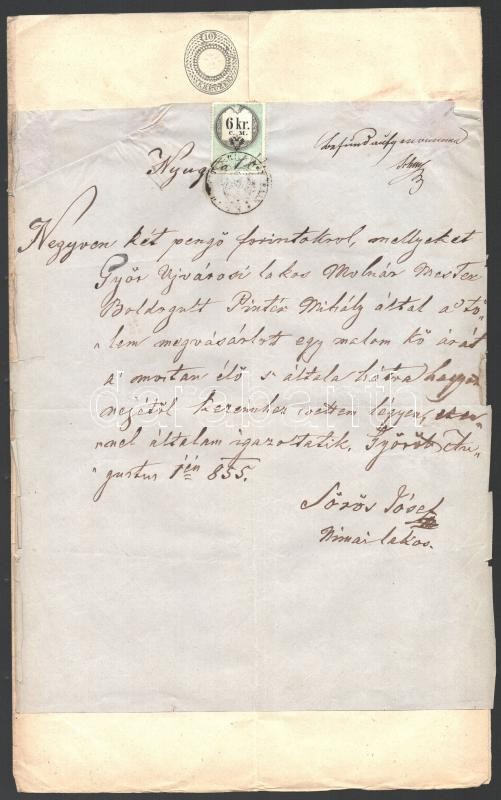 10
KREUZER
6 kr.
C. M.
befund aufgenommen
Negyven két pengő forintokrol, mellyeket
Győr Ujvárosi lakos Molnár Mester
Boldogult Pintér Mihály által a tő-
" lem megvásárlott egy malom kő árát
a mostan élő s általa hátra hagyo
nejétől kezemhez vettem légyen,
" nel általam igazoltatik. Győrött Au-
" gustus 1én 855.
Sörös Jósef
Nimai lakos.
darabanth